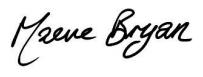 Maeve Bryan